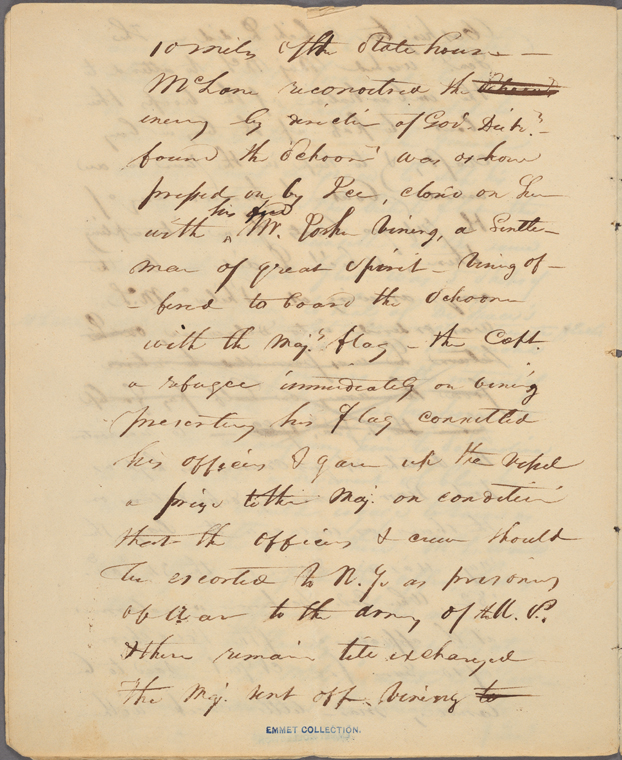 10 miles of the State house —
McLane reconoitred the
enemy by direction of Gov. Dick.ⁿ –
found the Schoonr was ashore
pressed on by Ice, close on
his friend
with ^ Mr. Vining, a Gentle–
man of great spirit – Vining of–
– fered to board the Schooner
with the Maj.ʳˢ flag – the Capt.
a refugee immediately on Vining
presenting his flag consulted
his officers & gave up the vessel
a prize to the Maj. on condition
that the officers & crew should
be escorted to N.Y. as prisoners
of War to the army of the U. S.
& there remain till exchanged
The Maj. sent off Vining to
EMMET COLLECTION.